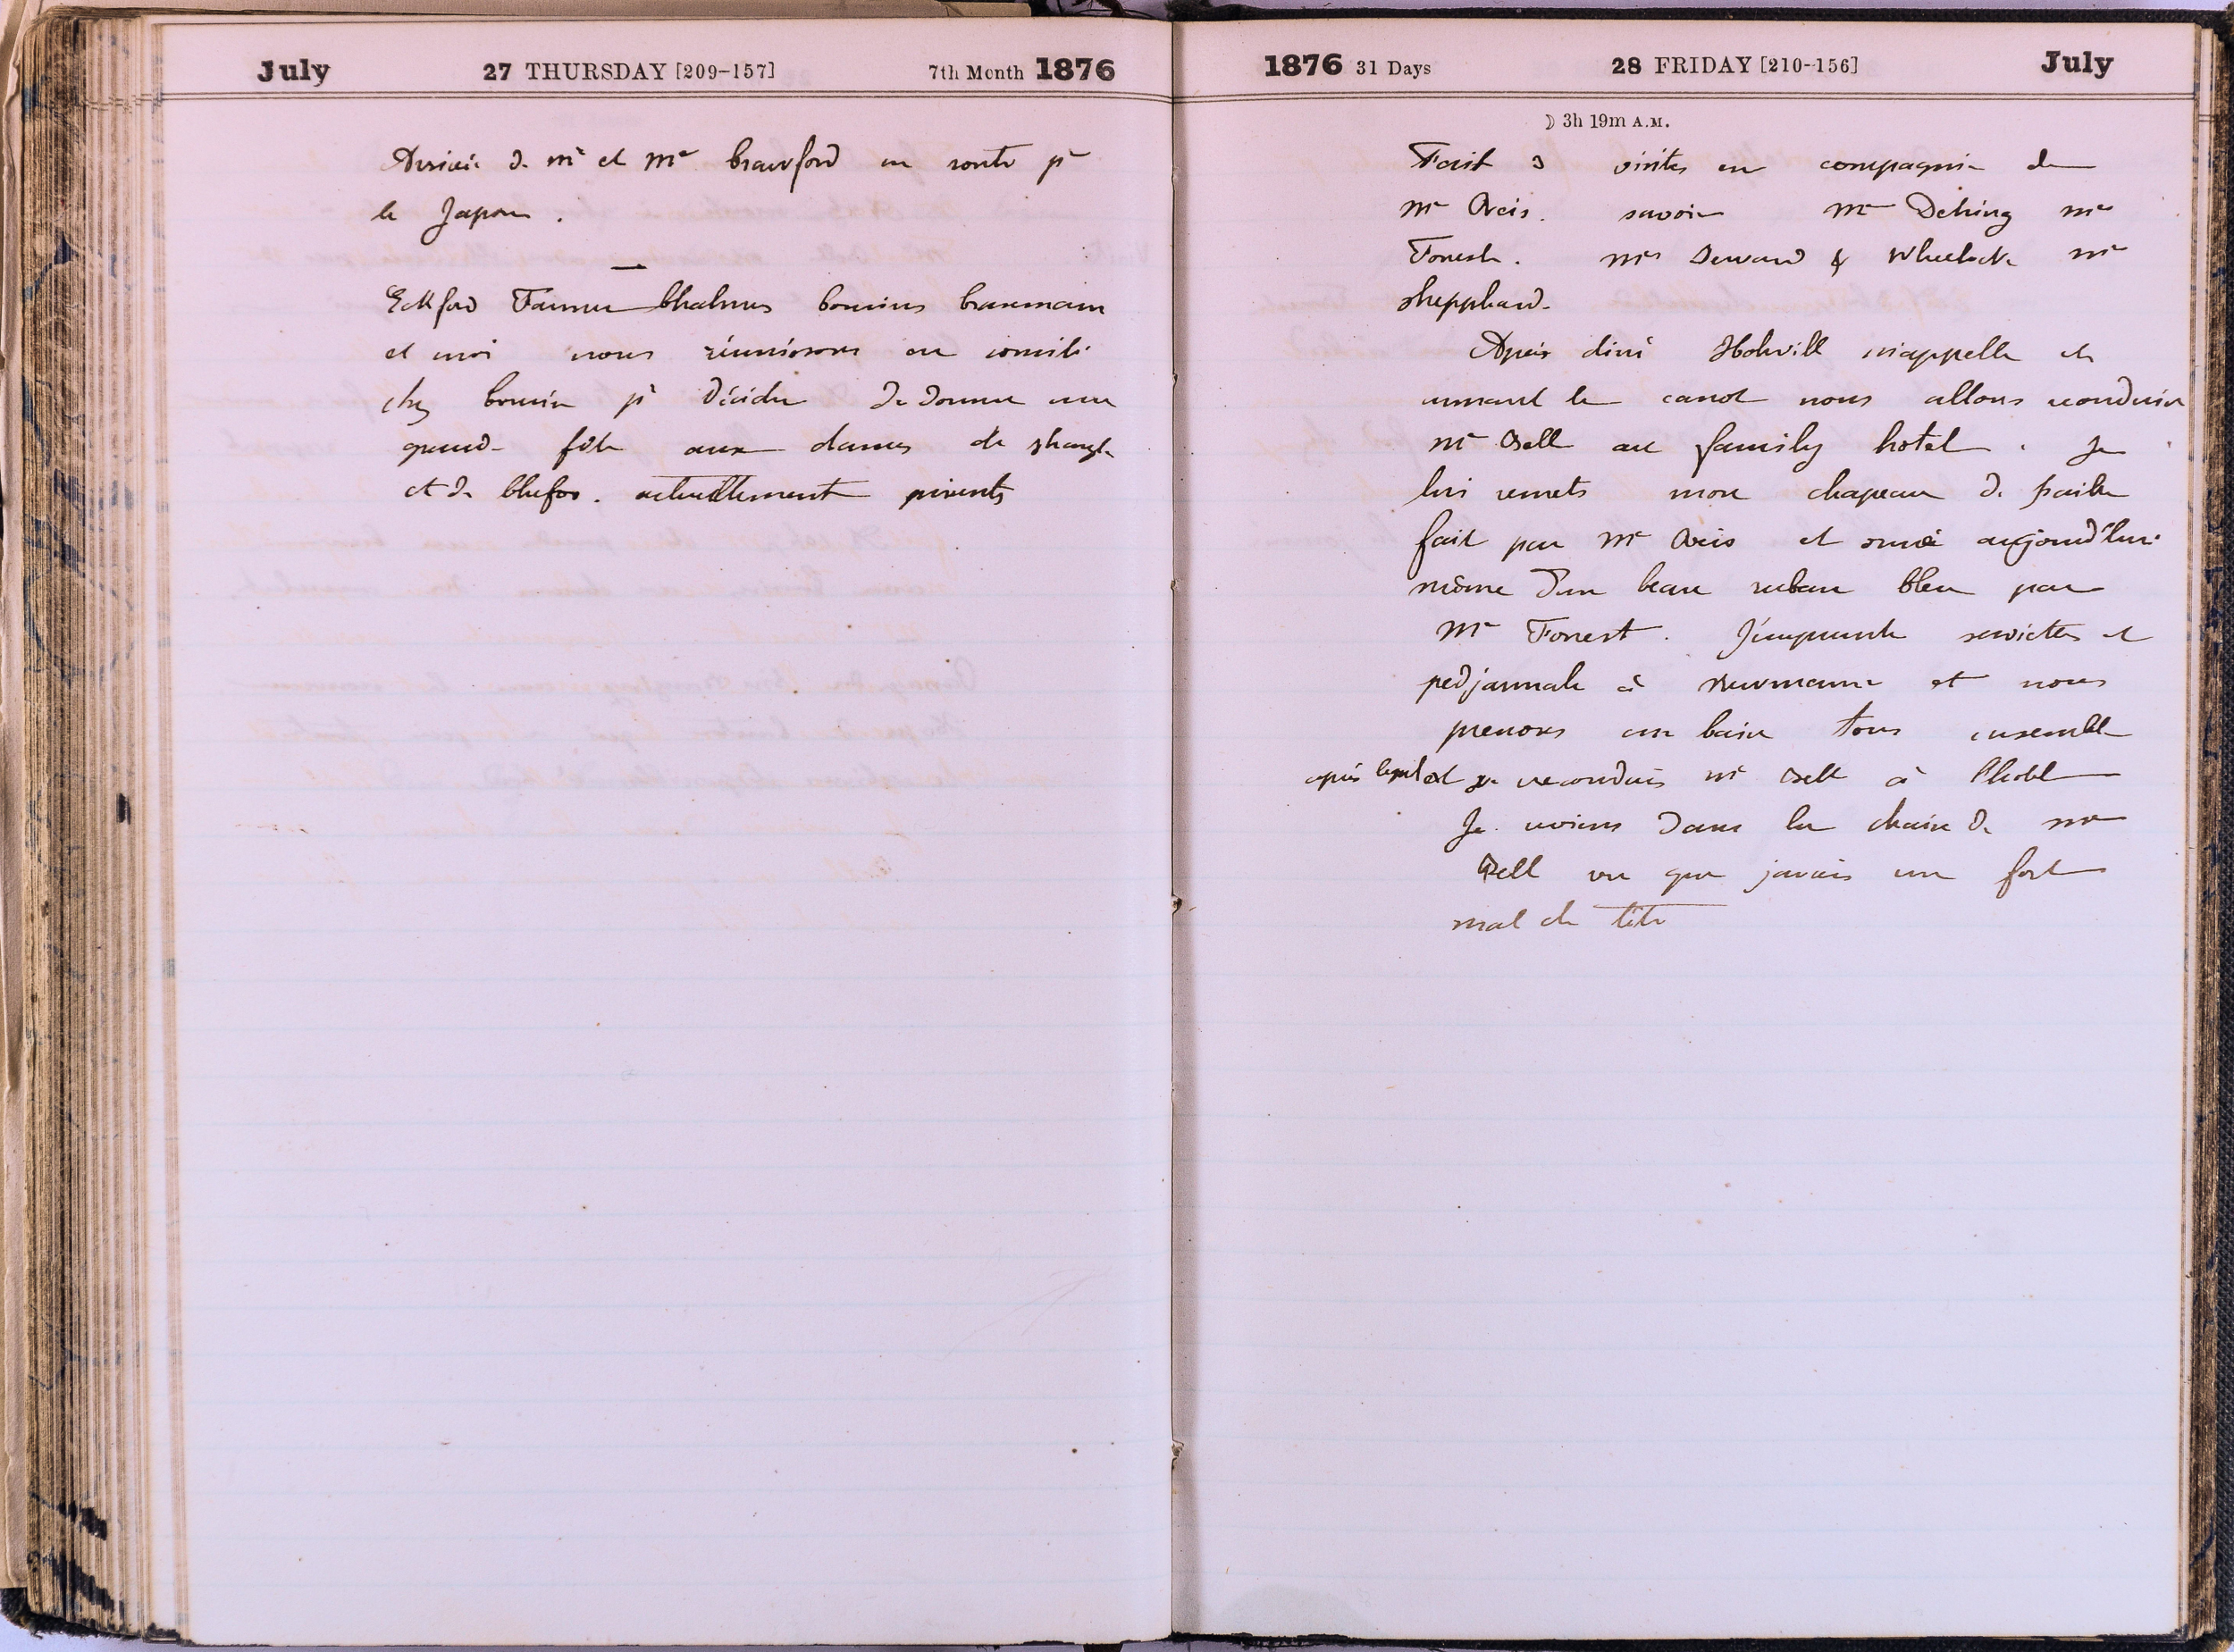 July 27 THURSDAY [209-157] 7th Month 1876
Arrivée de Mr et Me Crawford en route pr
le Japon.
Eckford Farmer Chalmers Cousins
et moi nous réunissons en comité
chez Cousin pr décider de donner une
grande fête aux dames de Shangh.
et de Chefoo. actuellement présents
1876 31 Days 28 FRIDAY [210-156] July
☽ 3h 19m A.M.
Fait 3 visites en compagnie de
Me savoir Me Detring Me
Forrest. Mes Seward & Wheelock Me
Shepphard.
Après diné Holwill m'appelle et
armant le canot nous allons reconduire
Me Bell au family hotel. Je
lui remets mon chapeau de paille
fait par Me et orné aujourd'hui
même d'un beau ruban bleu par
Me Forrest. J'emprunte serviettes et
pedjammah à Newmann et nous
prenons un bain tous ensemble
après lequel je reconduis Me Bell à l'hotel
Je reviens dans la chaise de Me
Bell vu que javais un fort
mal de tête